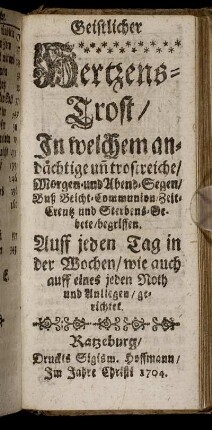 Geistlicher
Hertzens-
Trost/
In welchem an-
dächtige uñ trostreiche/
Morgen-und Abend-Segen/
Buß Beicht-Communion-Zeit-
Creutz und Sterbens-Ge-
bete/begriffen.
Auff jeden Tag in
der Wochen/wie auch
auff eines jeden Noth
und Anliegen/ge-
richtet.
Ratzeburg/
Druckts Sigism. Hoffmann/
Im Jahre Christi 1704.